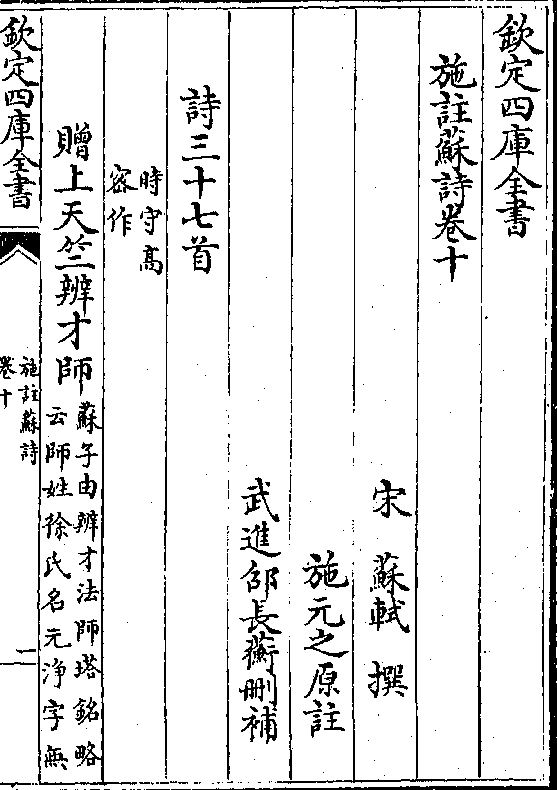 欽定四庫全書
施註蘇詩卷十
宋 蘇軾 撰
施元之原註
武進邵長蘅刪補
詩三十七首
時守高
密作
贈上天竺辨才師
蘇子由辨才法師塔銘略
云師姓徐氏名元淨字無
欽定四庫全書
施註蘇詩
卷十
一